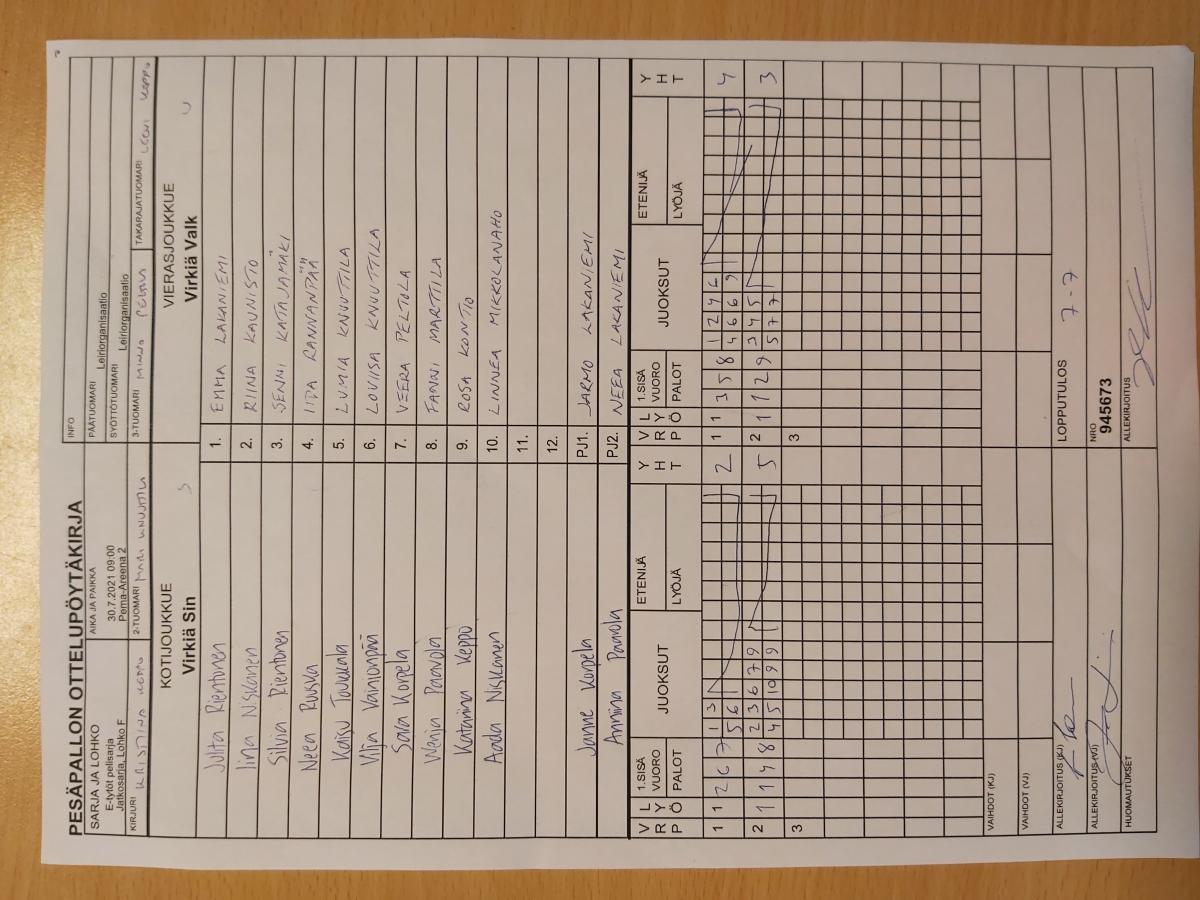 PESÄPALLON OTTELUPÖYTÄKIRJA
SARJA JA LOHKO
E-tytöt pelisarja
Jatkosarja, Lohko F
AIKA JA PAIKKA
30.7.2021 09:00
Pema-Areena 2
INFO
PÄÄTUOMARI Leiriorganisaatio
SYÖTTÖTUOMARI Leiriorganisaatio
KIRJURI KRISTIINA KEPPO
2-TUOMARI
3-TUOMARI MINNA
TAKARAJATUOMARI LEENI KEPPO
KOTIJOUKKUE
Virkiä Sin
VIERASJOUKKUE
Virkiä Valk
Julita Rientonen 1. EMMA LAKANIEMI
Iina Niskanen 2. RIINA KAUNISTO
Silvia Rientonen 3. SENNI KATAJAMÄKI
Neea Ruuska 4. IIDA RANNANPÄÄ
Kaisu Toukkala 5. LUMIA KNUUTTILA
Vilja Vainionpää 6. LOVIISA KNUUTTILA
Sara Korpela 7. VEERA PELTOLA
Wenja Paavola 8. FANNI MARTTILA
Katariina Keppo 9. ROSA KONTIO
Aada Niskanen 10. LINNEA MIKKOLANAHO
11.
12.
Janne Korpela PJ1. JARMO LAKANIEMI
Annina Paavola PJ2. NEEA LAKANIEMI
VRP LYÖ 1.SISÄ VUORO PALOT JUOKSUT ETENIJÄ LYÖJÄ YHT
VRP LYÖ 1.SISÄ VUORO PALOT JUOKSUT ETENIJÄ LYÖJÄ YHT
1 1 2 6 7 1 3 2
5 6
1 1 3 5 8 1 2 4 6 4
4 6 6 9
2 1 1 4 8 2 3 6 7 9 5
4 5 10 9 9
2 1 1 2 9 3 4 5 3
5 7 7
3
3
VAIHDOT (KJ)
VAIHDOT (VJ)
ALLEKIRJOITUS (KJ)
ALLEKIRJOITUS (VJ)
HUOMAUTUKSET
LOPPUTULOS 7-7
NRO
945673
ALLEKIRJOITUS